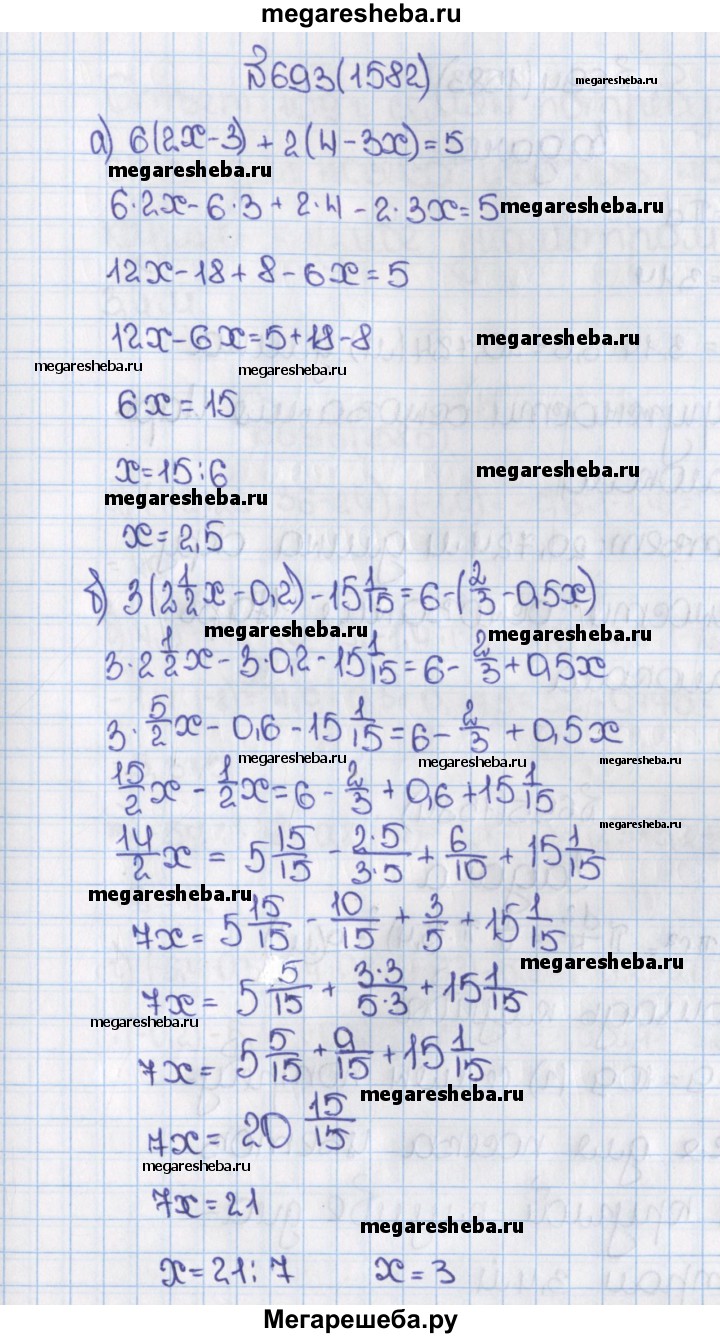 megaresheba.ru
№693(1582)
megaresheba.ru
а) 6(2x-3)+2(4-3x)=5
megaresheba.ru
6·2x-6·3+2·4-2·3x=5
megaresheba.ru
12x-18+8-6x=5
12x-6x=5+18-8
megaresheba.ru
megaresheba.ru
megaresheba.ru
6x=15
x=15:6
megaresheba.ru
megaresheba.ru
x=2,5
б) 3(2 1/2 x-0,2)-15 1/15=6-(2/3-0,5x)
megaresheba.ru
megaresheba.ru
3·2 1/2 x-3·0,2-15 1/15=6-2/3+0,5x
3·5/2 x-0,6-15 1/15=6-2/3+0,5x
megaresheba.ru
megaresheba.ru
15/2 x-1/2 x=6-2/3+0,6+15 1/15
megaresheba.ru
14/2 x=5 15/15-2·5/3·5+6/10+15 1/15
megaresheba.ru
7x=5 15/15-10/15+3/5+15 1/15
megaresheba.ru
7x=5 5/15+3·3/5·3+15 1/15
megaresheba.ru
7x=5 5/15+9/15+15 1/15
megaresheba.ru
7x=20 15/15
megaresheba.ru
7x=21
megaresheba.ru
x=21:7 x=3
Мегарешеба.ру